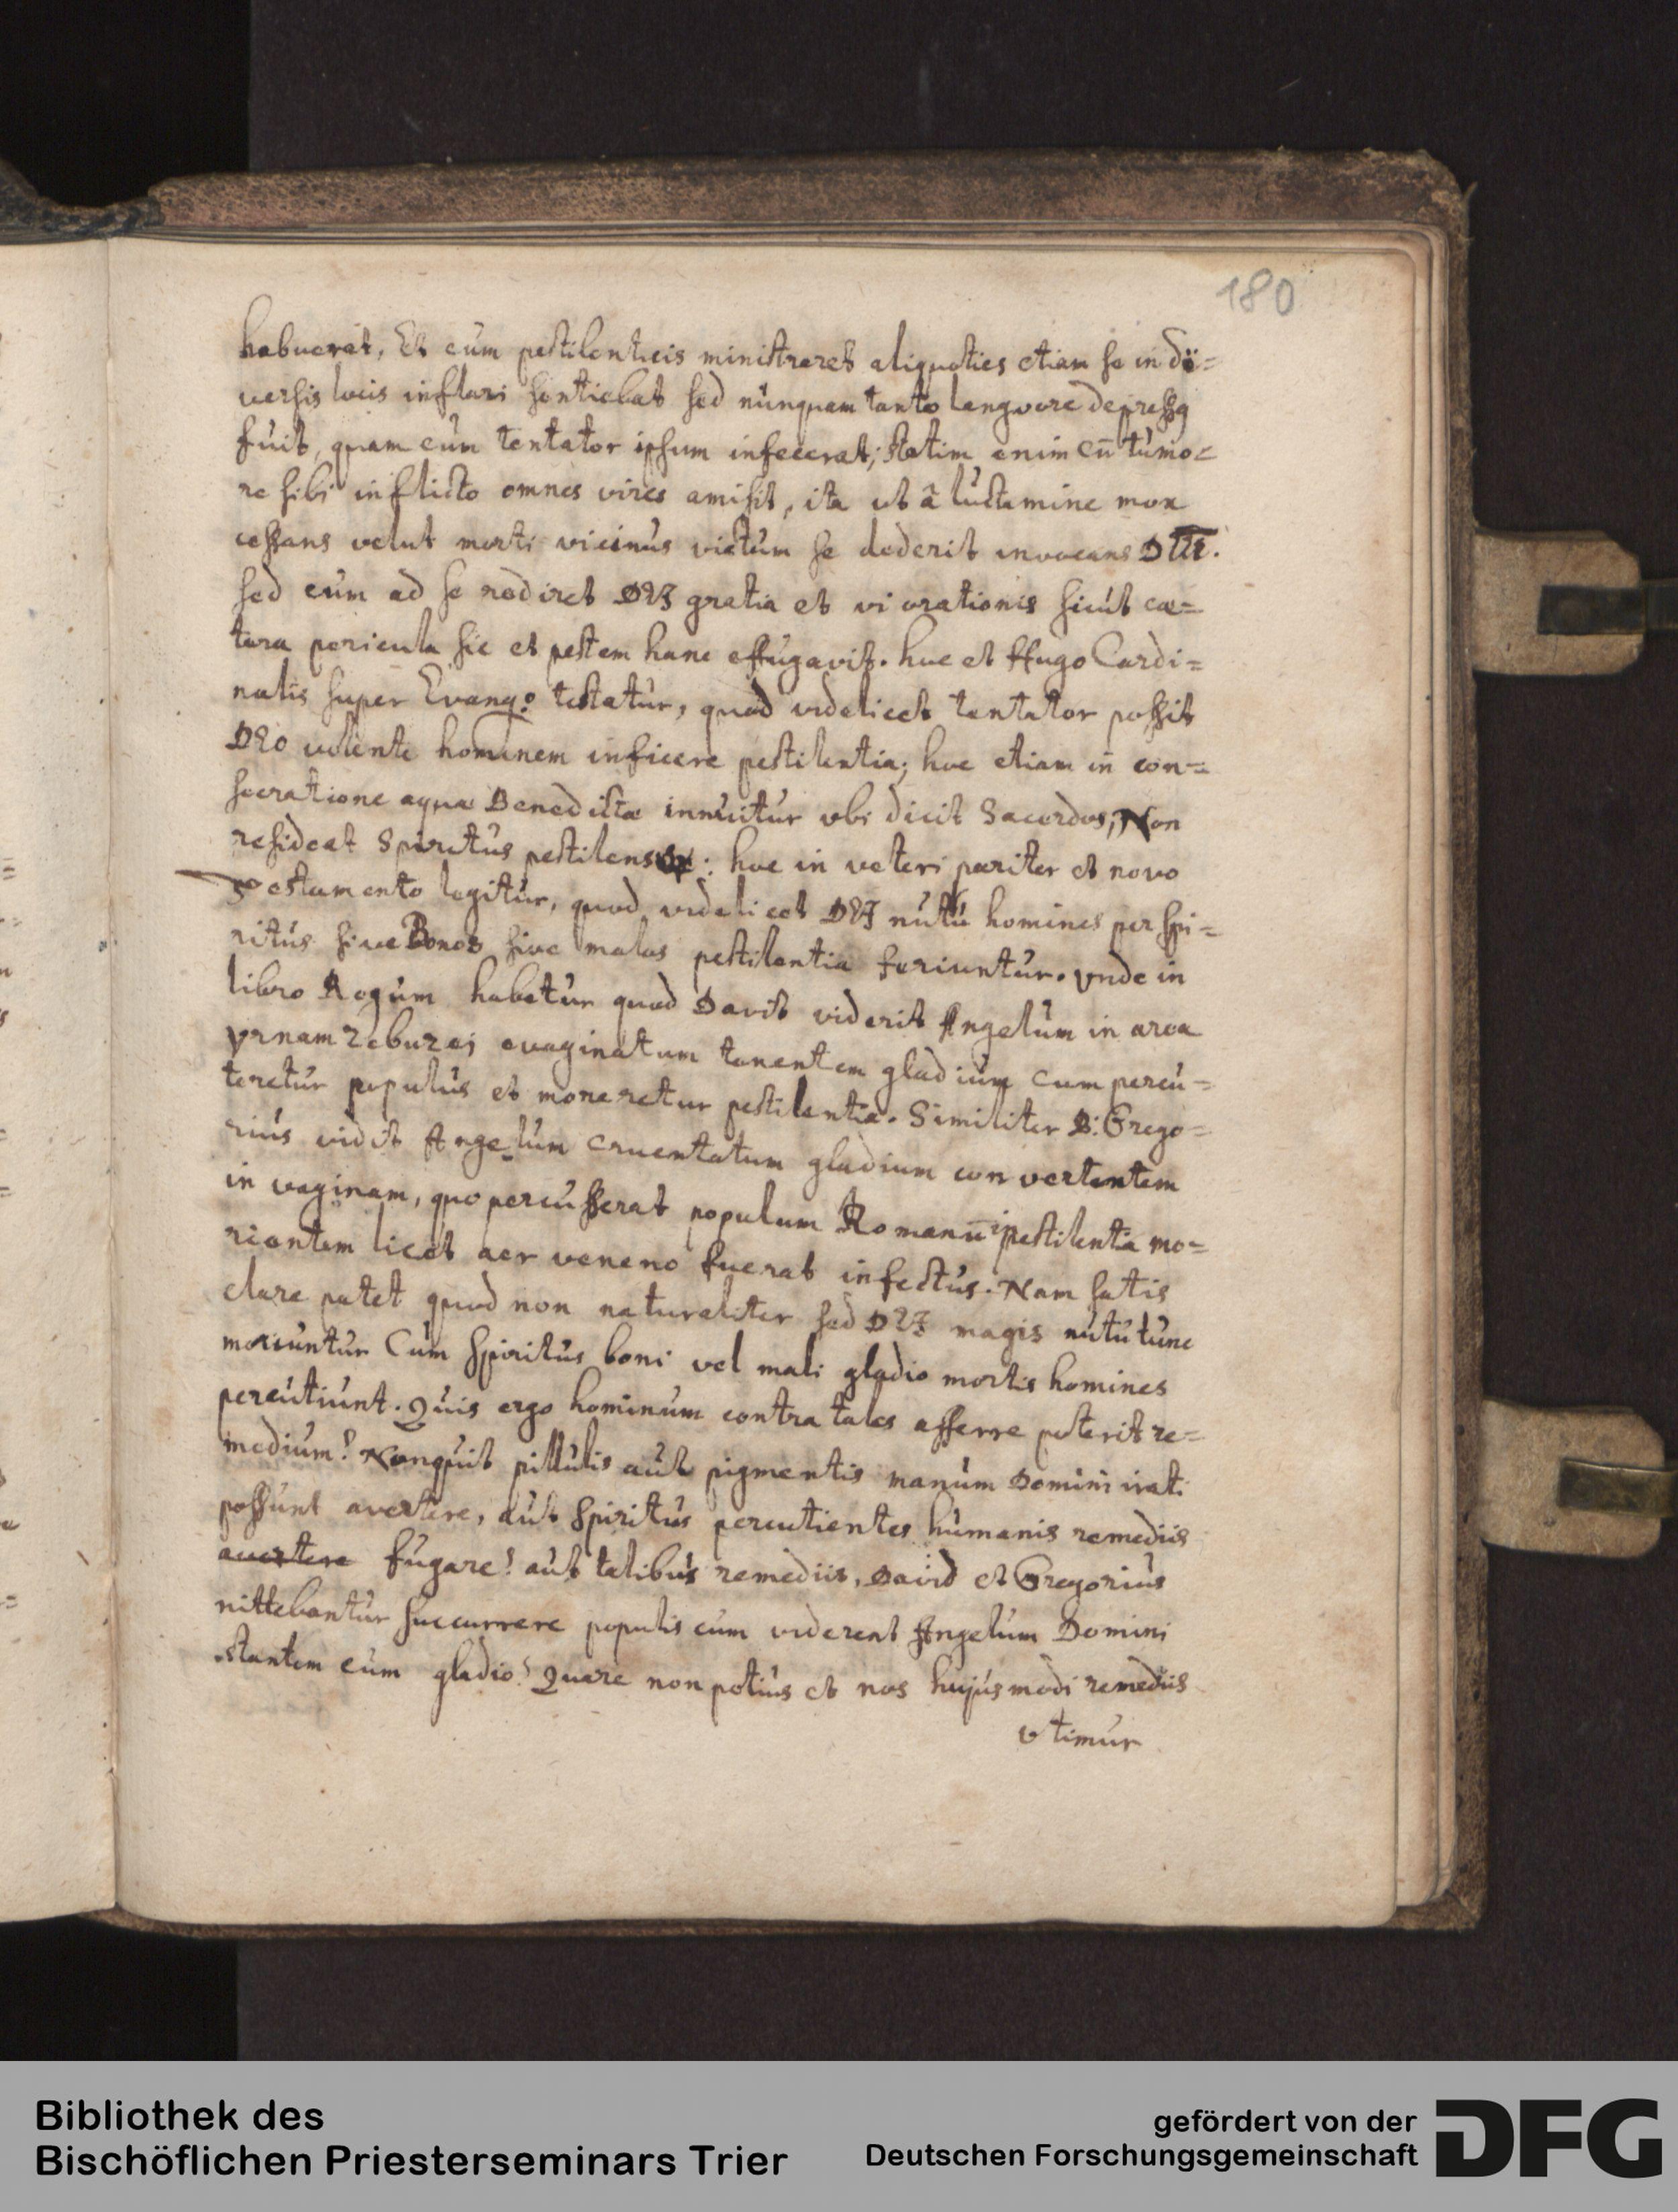 180
habuerat, Et cum pestilenticis ministraret aliquoties etiam se in dï=
versis locis inflari sentiebat sed núnquam tanto langvore depressꝯ
fuit, quam cum tentator ipsum infecerat; statim enim cū túmo=
re sibi inflicto omnes vires amisit, ita ut â luctamine mox
cessans velut morti vicinus victúm se dederit invocans D̅M̅.
sed cúm ad se rediret DEI gratia et vi orationis sicút cæ=
tera pericula sic et pestem hanc effúgavit. hoc et Hugo Cardi=
nalis super Evangº testatúr, quod videlicet tentator possit
DEO volente hominem inficere pestilentia; hoc etiam in con=
secratione aquæ Benedictæ innúitúr vbi dicit Sacerdos, Non
resideat Spiritus pestilens: hoc in veteri pariter et novo
Testamento legitúr, quod videlicet DEI nútú homines per spi=
ritús sive Bonos sive malos pestilentia feriuntúr. Vnde in
libro Regúm habetúr quod Davit viderit Angelúm in area
Vrnam Zebuzei evaginatum tenentem gladiúm cum percú=
teretúr populús et moreretur pestilentia. Similiter B: Grego=
riús vidit Angelúm cruentatum gladium convertentem
in vaginam, quo percússerat populum Romanū pestilentia mo=
rientem licet aer veneno fuerat infectús. Nam satis
clare patet quod non naturaliter sed DEI magis nútú túnc
moriúntúr Cúm Spiritús boni vel mali gladio mortis homines
percútiúnt. Quis ergo hominúm contra tales afferre poterit re=
medium? Nunquit pillúlis aút pigmentis manúm Domini irati
possúnt avertere, aút Spiritús percutientes húmanis remediis
avertere fúgare? aút talibús remediis, David et Gregoriús
nittebantúr succurrere populis cúm viderent Angelúm Domini
stantem cúm gladio? Quare non potiús et nos hujúsmodi remediis
vtimúr
Bibliothek des
Bischöflichen Priesterseminars Trier
gefördert von der
Deutschen Forschungsgemeinschaft
DFG